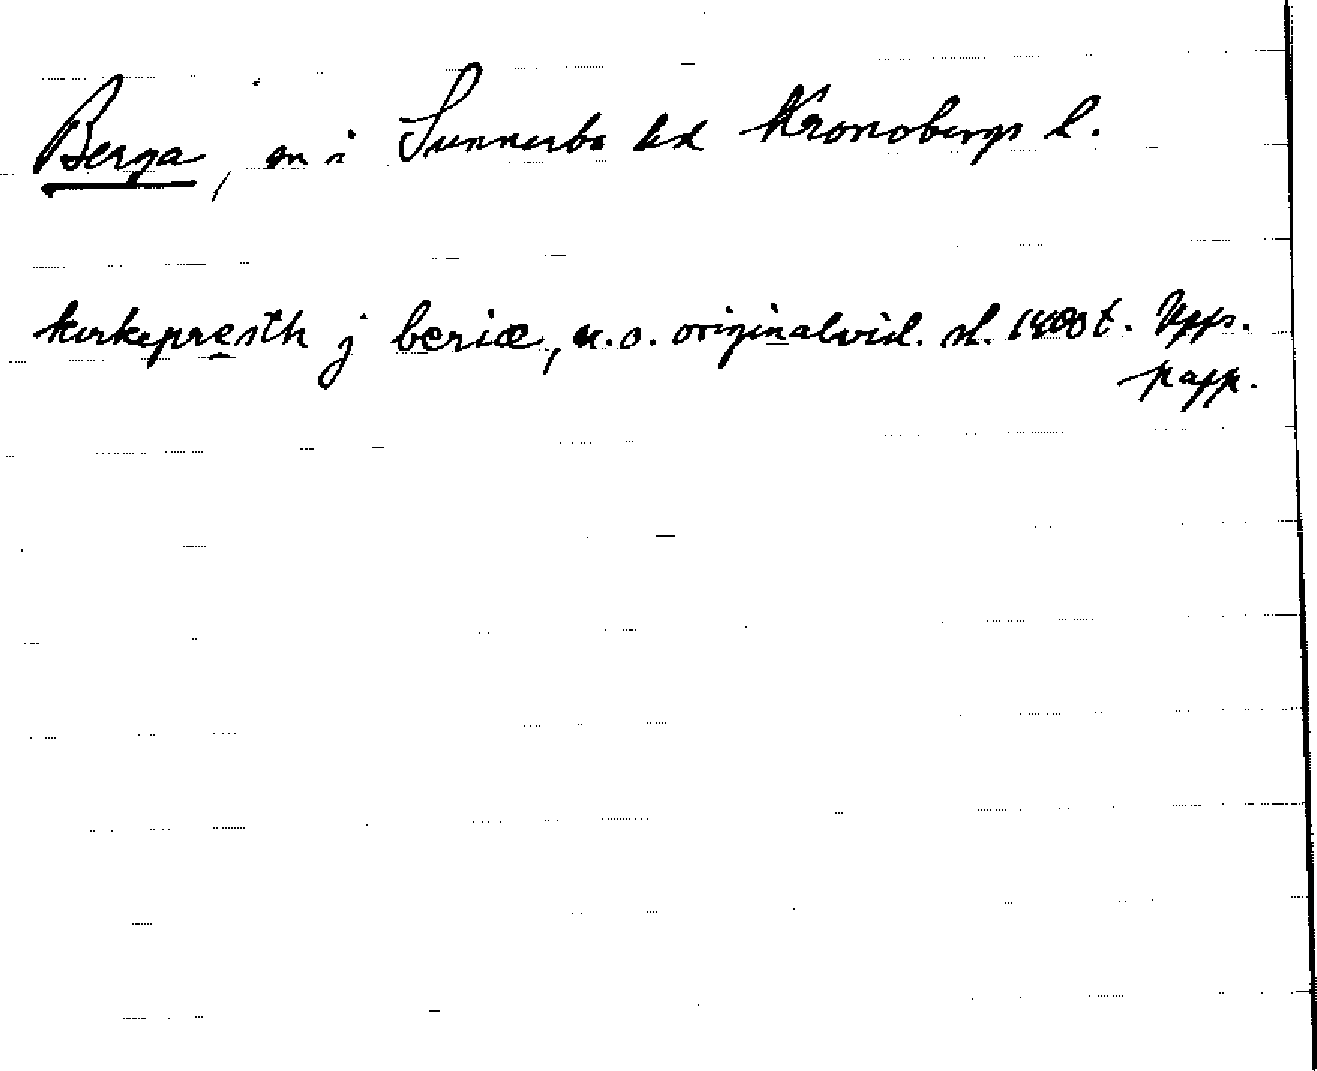 Berga, sn i Sunnerbo hd Kronobergs l.
kirkepresth j beriæ, u.o. originalvid. sl. 1400 t. Upps.
papp.